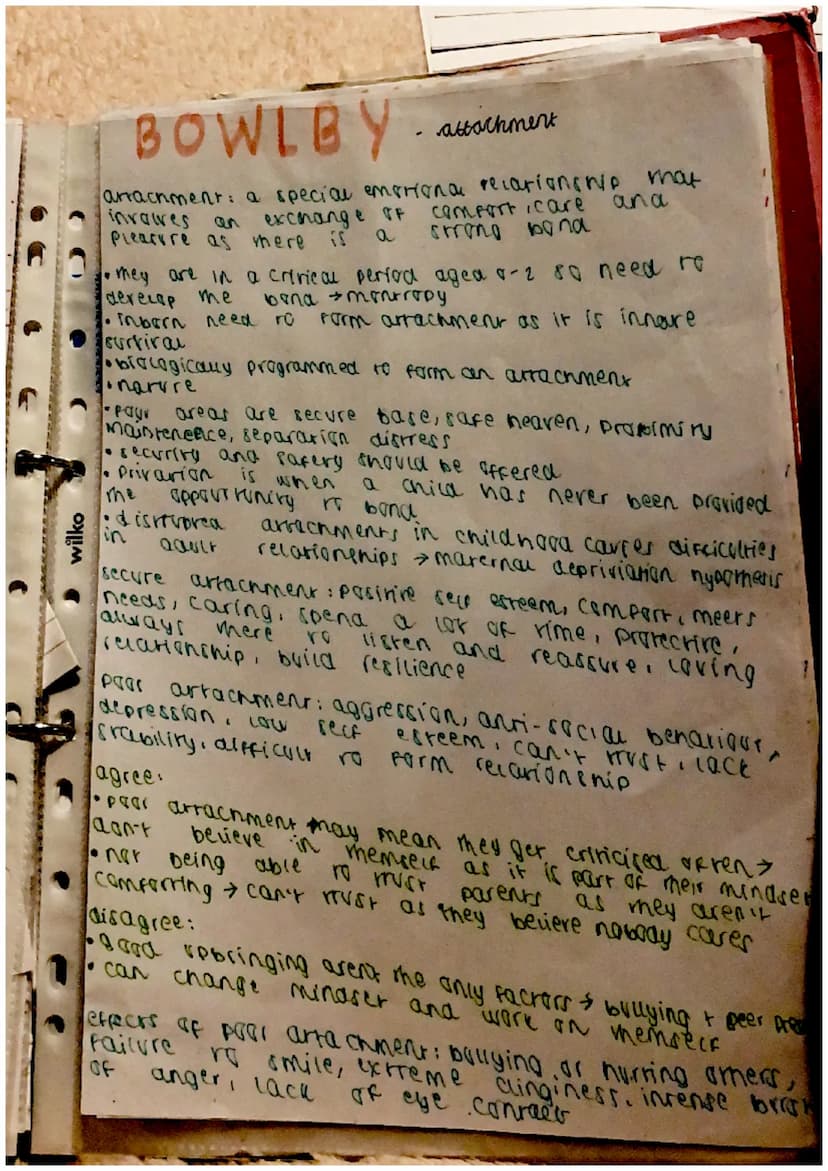 BOWLBY - attachment
attachment: a special emotional relationship that
involves an exchange of comfort, care and
pleasure as there is a strong bond
• they are in a critical period aged 0-2 so need to
develop the bond → montropy
• inborn need to form attachment as it is innate
survival
• biologically programmed to form an attachment
• nature
• four areas are secure base, safe heaven, proximity
maintenence, separation distress
• security and safety should be offered
• privation is when a child has never been provided
the oppourtunity to bond
• disrupted attachments in childhood causes difficulties
in adult relationships → maternal depriviation hypothesis
wilko
secure attachment: positive self esteem, comfort, meets
needs, caring, spend a lot of time, protective,
always there to listen and reassure, loving
relationship, build resilience
poor attachment: aggression, anti-social behaviour,
depression, low self esteem, can't trust, lack
stability, difficult to form relationship
agree:
• poor attachment may mean they get criticised often →
don't believe in themself as it is part of their mindset
• not being able to trust parents as they aren't
comforting → can't trust as they believe nobody cares
disagree:
• good upbringing arent the only factors → bullying + peer
• can change mindset and work on themself
effects of poor attachment: bullying or hurting others,
failure to smile, extreme clinginess, intense
of anger, lack of eye contact